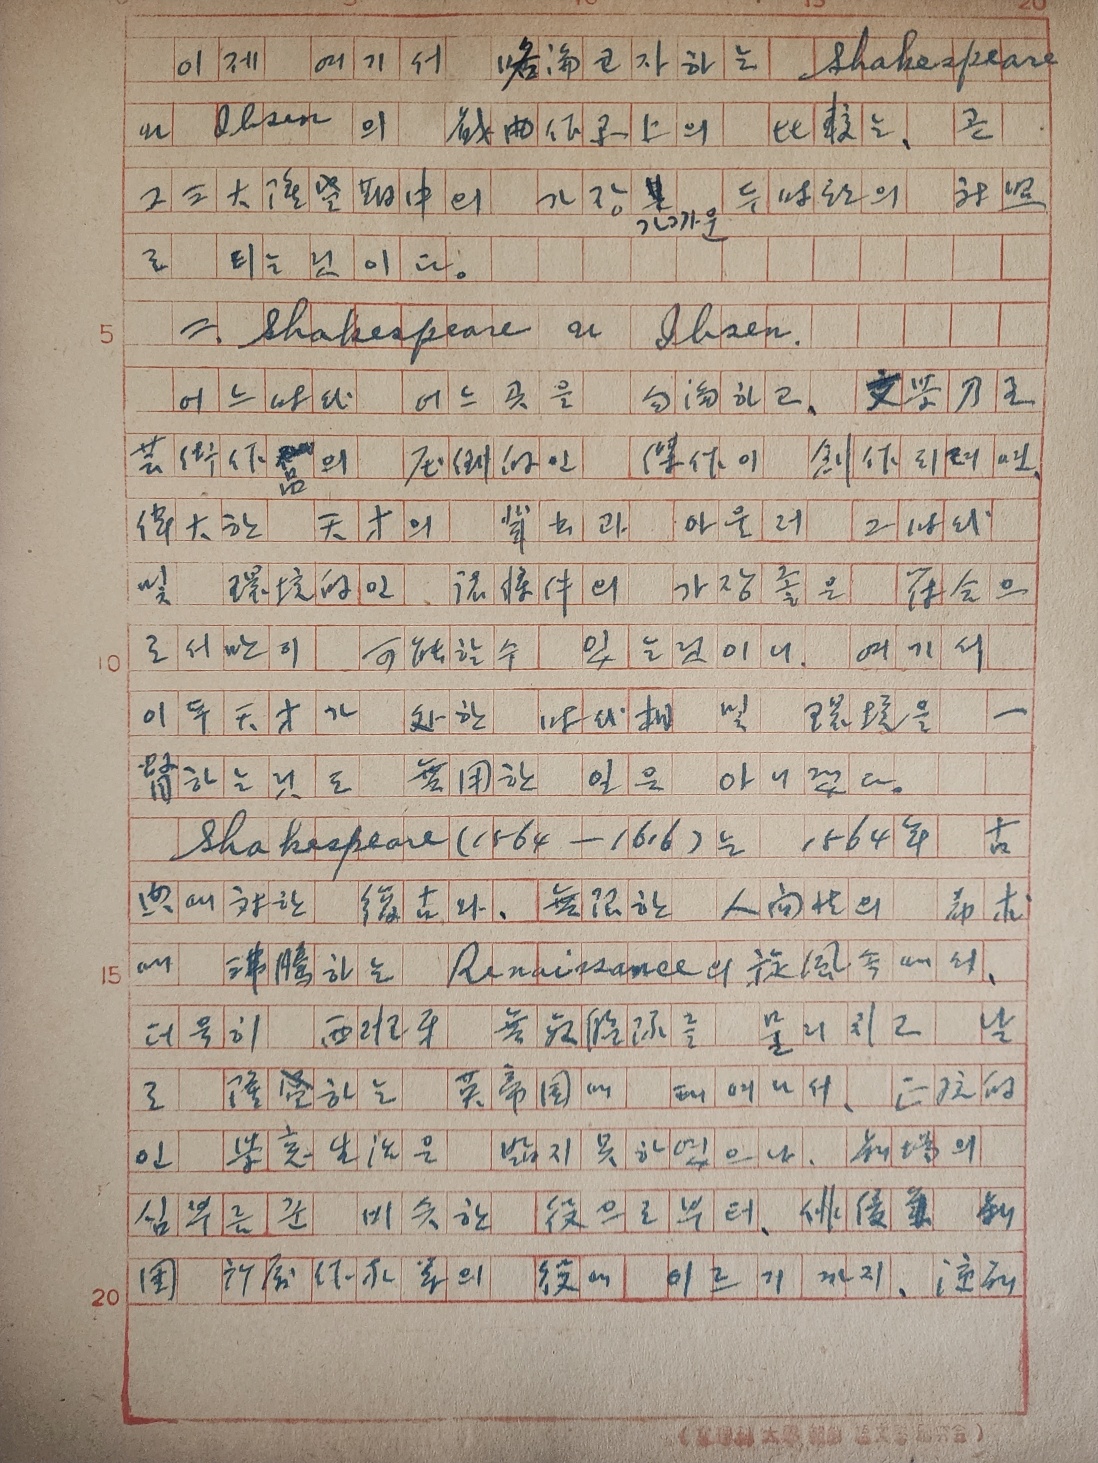 이제 여기서 略論코자하는 Shakespeare
와 Ibsen의 戱曲作品上의 比較는, 곧
그三大隆盛期中의 가장 가까운 두時代의 対照
로 되는것이다.
二. Shakespeare 와 Ibsen.
어느時代 어느곳을 勿論하고, 文学乃至
芸術作品의 偉大한 傑作이 創作되려면,
偉大한 天才의 와 아울러 그時代
및 環境的인 諸條件의 가장좋은 으
로서만이 可能할수 있는것이니, 여기서
이두天才가 処한 時代相 및 環境을 一
瞥하는것도 無用한 일은 아니겠다.
Shakespeare (1564 — 1616) 는 1564年 古
典에対한 復古와, 無限한 人間性의 希求
에 沸騰하는 Renaissance의 旋風속에서,
더욱히 西班牙 無敵艦隊를 물리치고 날
로 隆盛하는 英帝国에 태여나서, 正統的
인 学究生活은 밟지못하였으나, 劇場의
심부름군 비슷한 役으로부터, 俳優 劇
団 附属作家 等의 役에 이르기까지,